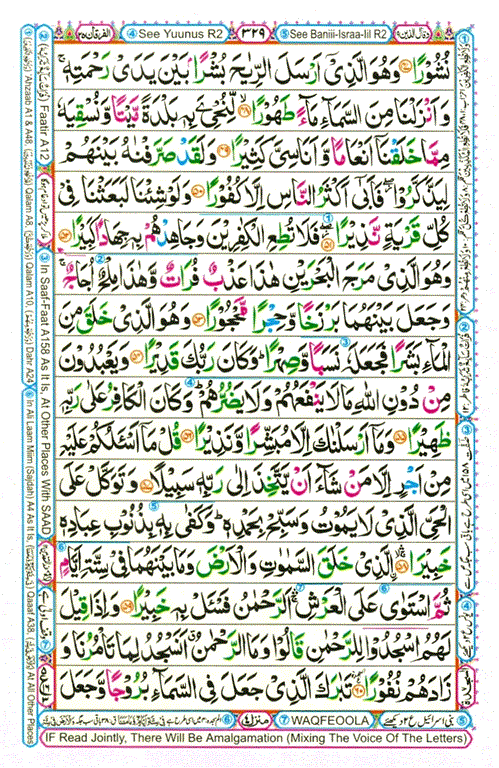 وقال الذين ١٩
⑤ See Baniii-Israa-Iil R2
٣٢٩
④ See Yuunus R2
الفرقان ٢٥
نُشُوْرًا ﴿٤٧﴾ وَهُوَ الَّذِيْۤ اَرْسَلَ الرِّيٰحَ بُشْرًۢا بَيْنَ يَدَيْ رَحْمَتِهٖ ۚ
وَاَنْزَلْنَا مِنَ السَّمَآءِ مَآءً طَهُوْرًا ﴿٤٨﴾ لِّنُحْيِۦَ بِهٖ بَلْدَةً مَّيْتًا وَّنُسْقِيَهٗ
مِمَّا خَلَقْنَاۤ اَنْعَامًا وَّاَنَاسِيَّ كَثِيْرًا ﴿٤٩﴾ وَلَقَدْ صَرَّفْنٰهُ بَيْنَهُمْ
لِيَذَّكَّرُوْا ۖ فَاَبٰۤى اَكْثَرُ النَّاسِ اِلَّا كُفُوْرًا ﴿٥٠﴾ وَلَوْ شِئْنَا لَبَعَثْنَا فِيْ
كُلِّ قَرْيَةٍ نَّذِيْرًا ﴿٥١﴾ فَلَا تُطِعِ الْكٰفِرِيْنَ وَجَاهِدْهُمْ بِهٖ جِهَادًا كَبِيْرًا ﴿٥٢﴾
وَهُوَ الَّذِيْ مَرَجَ الْبَحْرَيْنِ هٰذَا عَذْبٌ فُرَاتٌ وَّهٰذَا مِلْحٌ اُجَاجٌ ۚ
وَجَعَلَ بَيْنَهُمَا بَرْزَخًا وَّحِجْرًا مَّحْجُوْرًا ﴿٥٣﴾ وَهُوَ الَّذِيْ خَلَقَ مِنَ
الْمَآءِ بَشَرًا فَجَعَلَهٗ نَسَبًا وَّصِهْرًا ؕ وَكَانَ رَبُّكَ قَدِيْرًا ﴿٥٤﴾ وَيَعْبُدُوْنَ
مِنْ دُوْنِ اللّٰهِ مَا لَا يَنْفَعُهُمْ وَلَا يَضُرُّهُمْ ؕ وَكَانَ الْكَافِرُ عَلٰى رَبِّهٖ
ظَهِيْرًا ﴿٥٥﴾ وَمَاۤ اَرْسَلْنٰكَ اِلَّا مُبَشِّرًا وَّنَذِيْرًا ﴿٥٦﴾ قُلْ مَاۤ اَسْئَلُكُمْ عَلَيْهِ
مِنْ اَجْرٍ اِلَّا مَنْ شَآءَ اَنْ يَّتَّخِذَ اِلٰى رَبِّهٖ سَبِيْلًا ﴿٥٧﴾ وَتَوَكَّلْ عَلَى
الْحَيِّ الَّذِيْ لَا يَمُوْتُ وَسَبِّحْ بِحَمْدِهٖ ؕ وَكَفٰى بِهٖ بِذُنُوْبِ عِبَادِهٖ
خَبِيْرًا ﴿٥٨﴾ الَّذِيْ خَلَقَ السَّمٰوٰتِ وَالْاَرْضَ وَمَا بَيْنَهُمَا فِيْ سِتَّةِ اَيَّامٍ
ثُمَّ اسْتَوٰى عَلَى الْعَرْشِ ۛ اَلرَّحْمٰنُ فَسْئَلْ بِهٖ خَبِيْرًا ﴿٥٩﴾ وَاِذَا قِيْلَ
لَهُمُ اسْجُدُوْا لِلرَّحْمٰنِ قَالُوْا وَمَا الرَّحْمٰنُ ۗ اَنَسْجُدُ لِمَا تَاْمُرُنَا وَ
زَادَهُمْ نُفُوْرًا ﴿٦٠﴾ تَبٰرَكَ الَّذِيْ جَعَلَ فِي السَّمَآءِ بُرُوْجًا وَّجَعَلَ
② Faatir A12
③ In Saaf-Faat A158 As It Is, At Other Places With SAAD
Ahzaab A1 & A48, Qalam A8, Qalam A10, Dahr A24
⑥ In Ali Laam Miim (Sajdah) A4 As It Is, Qaaaf A38, At All Other Places
⑦ WAQFEOOLA
منزل ٤
IF Read Jointly, There Will Be Amalgamation (Mixing The Voice Of The Letters)